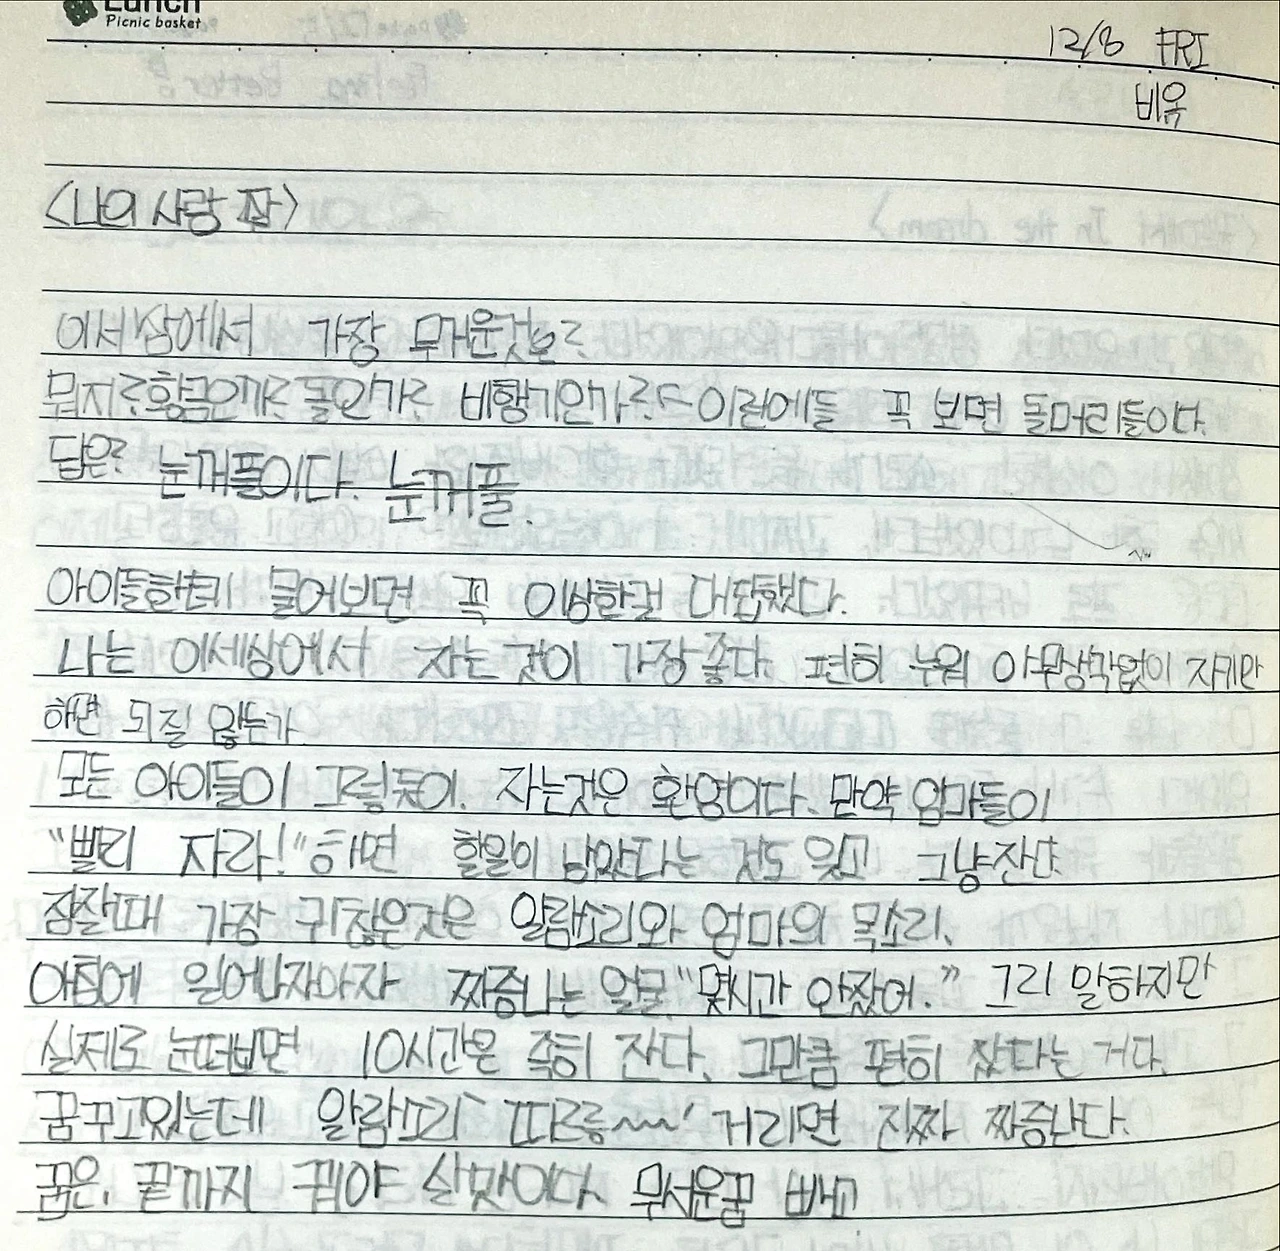 Lunch
Picnic basket
12/8 FRI
비옴
<나의 사랑 잠>
이세상에서 가장 무거운것은?
뭐지? 황금인가? 돌인가? 비행기인가? 이런애들 꼭 보면 돌머리들이다.
답은? 눈꺼풀이다. 눈꺼풀.
아이들한테 물어보면 꼭 이상한걸 대답했다.
나는 이세상에서 자는 것이 가장 좋다. 편히 누워 아무생각없이 자기만
하면 되질 않는가
모든 아이들이 그렇듯이. 자는것은 환영이다. 만약 엄마들이
"빨리 자라!" 하면 할일이 남았다는 것도 잊고 그냥잔다.
잠잘때 가장 귀찮은것은 알람소리와 엄마의 목소리.
아침에 일어나자마자 짜증나는 얼굴 "몇시간 안잤어." 그리 말하지만
실제로 눈떠보면 10시간은 족히 잔다. 그만큼 편히 잤다는 거다.
꿈꾸고있는데 알람소리가 '따르릉~~' 거리면 진짜 짜증난다.
꿈은. 끝까지 꿔야 살맛이다. 무서운꿈 빼고